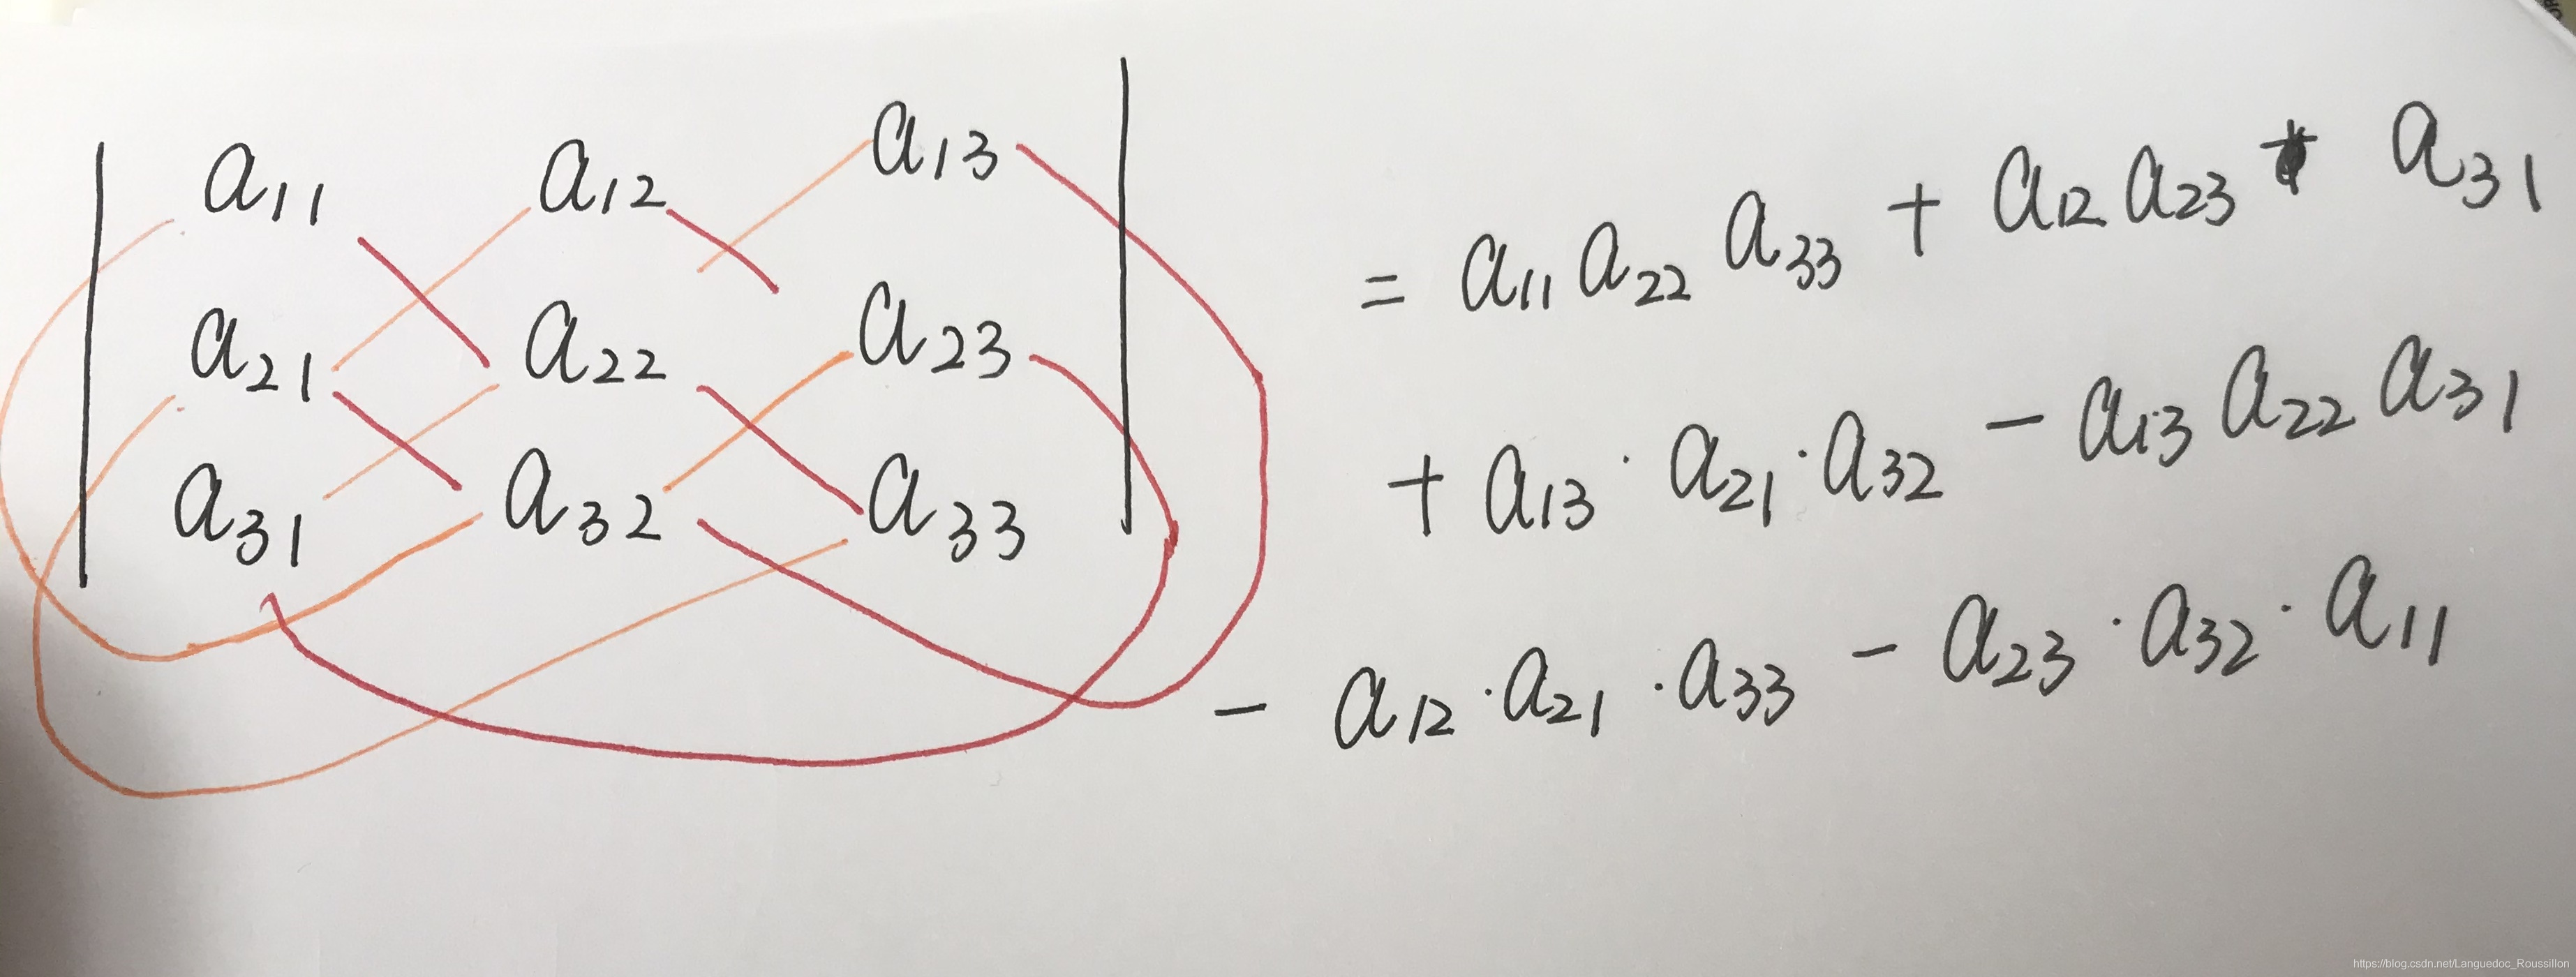 | a11 a12 a13 |
| a21 a22 a23 |
| a31 a32 a33 |
= a11 a22 a33 + a12 a23 a31
+ a13 · a21 · a32 - a13 a22 a31
- a12 · a21 · a33 - a23 · a32 · a11
https://blog.csdn.net/Languedoc_Roussillon